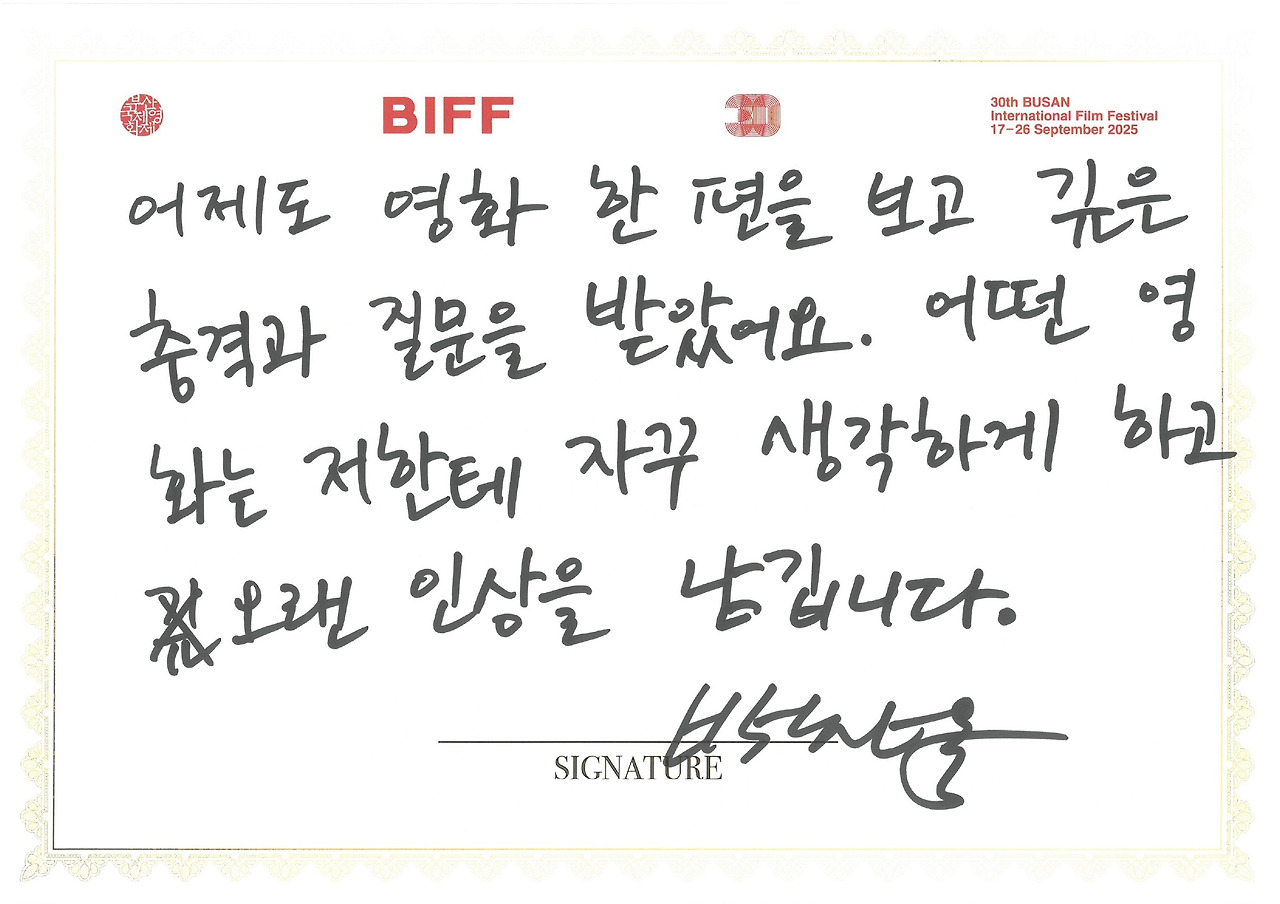 부산국제영화제
BIFF
30
30th BUSAN
International Film Festival
17–26 September 2025
어제도 영화 한 편을 보고 깊은
충격과 질문을 받았어요. 어떤 영
화는 저한테 자꾸 생각하게 하고
오랜 인상을 남깁니다.
SIGNATURE